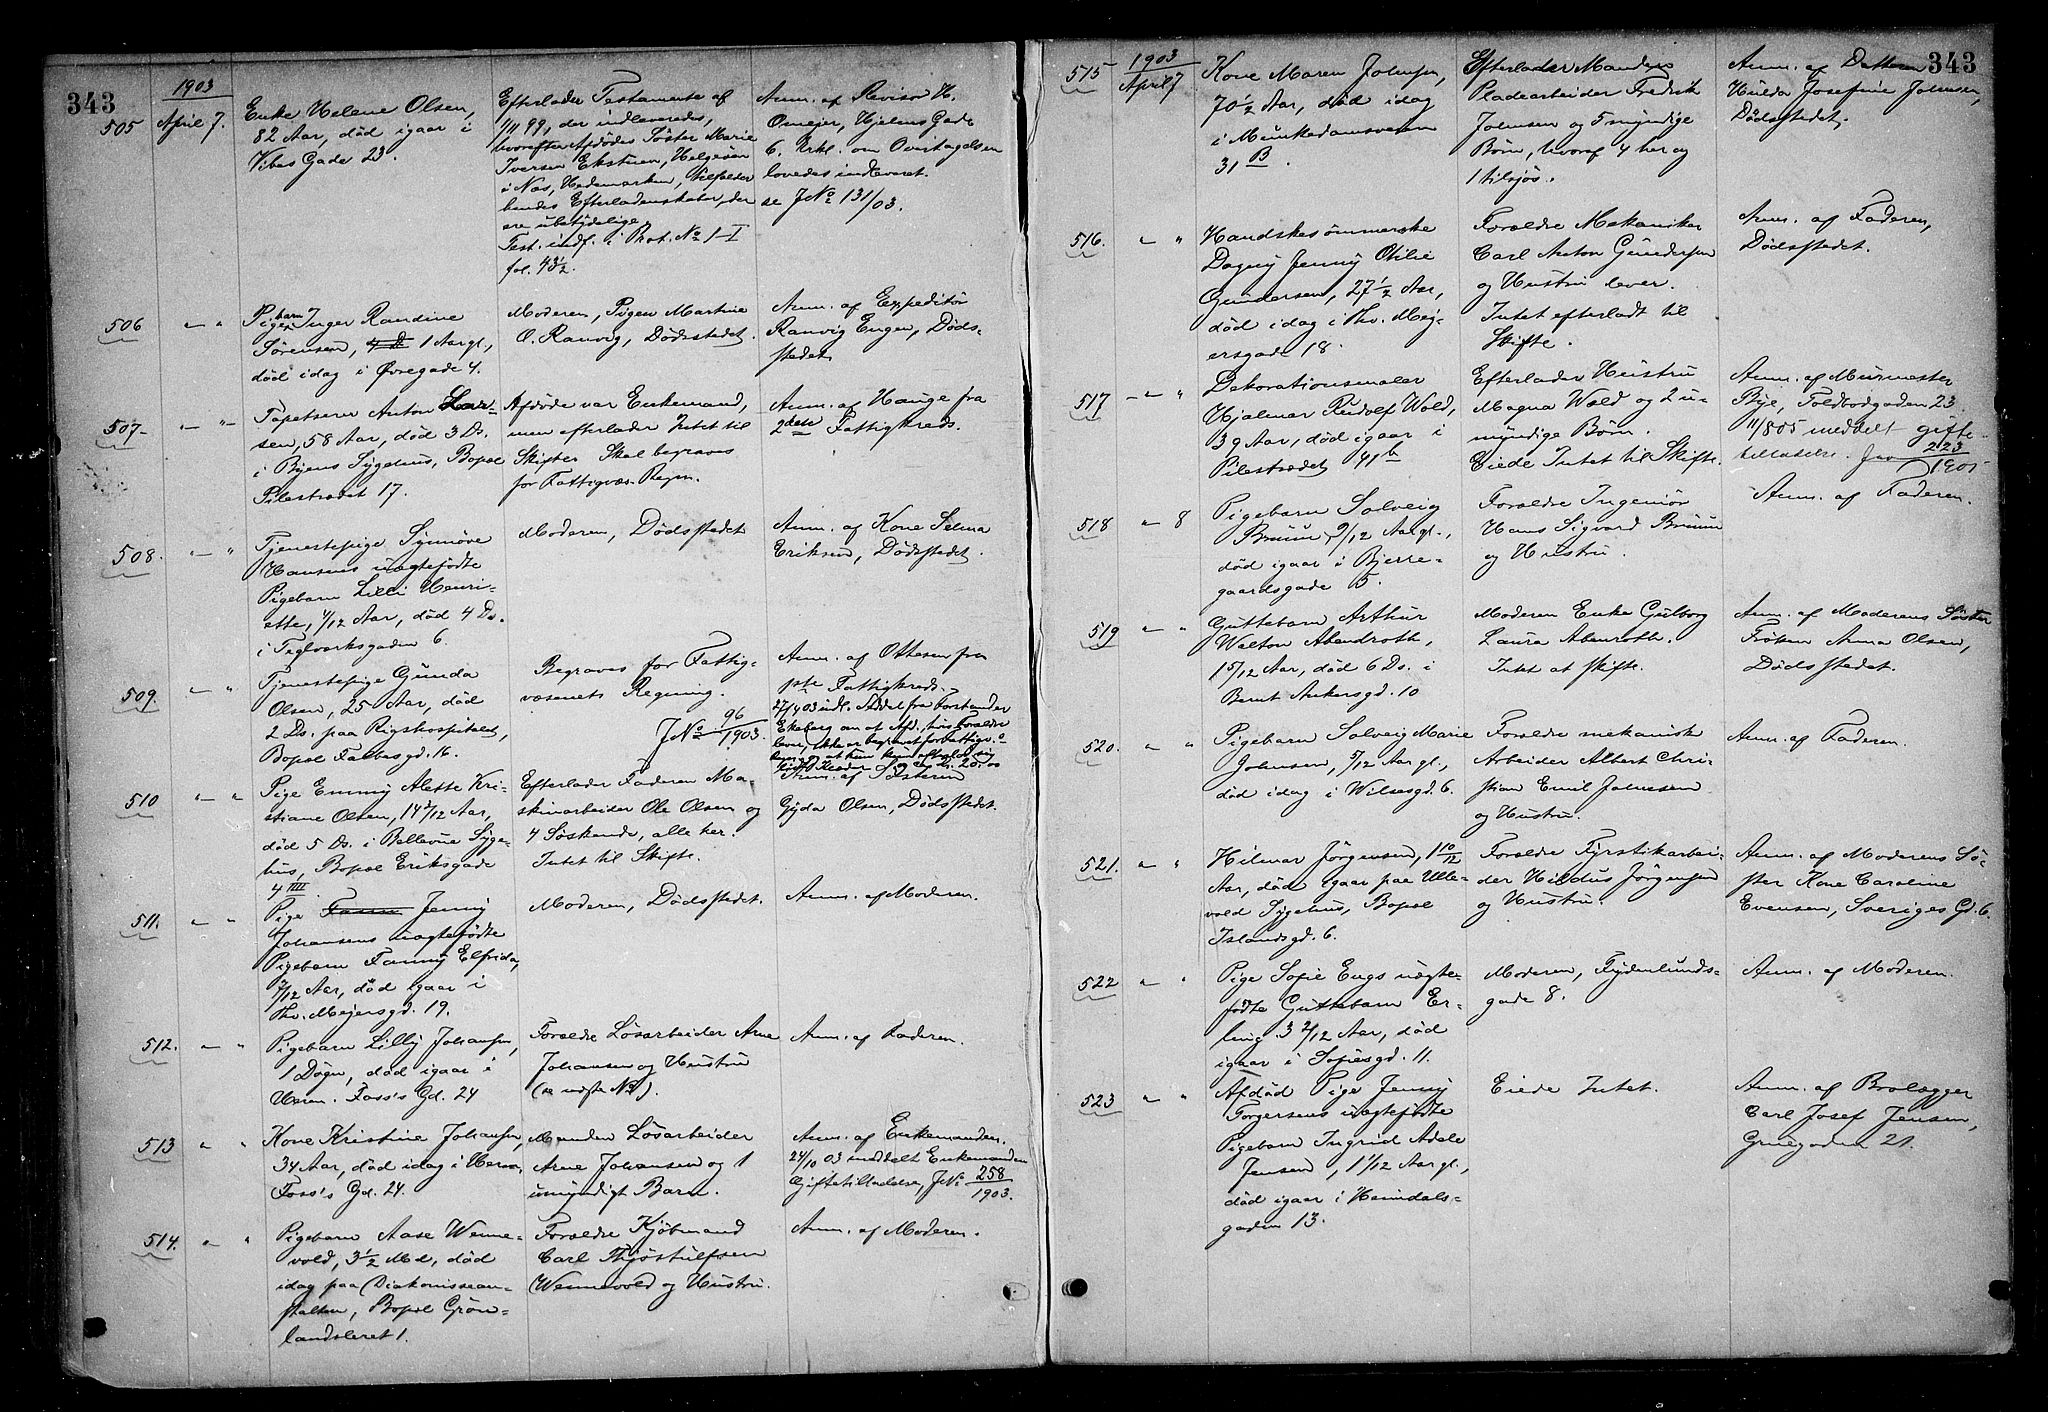 343
1903
505
April 7.
Enke Helene Olsen,
82 Aar, död igaar i
Vibes Gade 23.
Efterlader Testamente af
1/11 99, der indleveredes,
hvorefter Afdødes Söster Marie
Iversen Ekstuen, Helgesen
i Næs, Hedemarken, tilfalder
hendes Efterladenskaber, der
ere ubetydelige.
Test. indf. i Prot. No 1-I
fol. 43½.
Anm. af Revisor H.
Omejer, Hjelms Gade
6. Erkl. om Overtagelsen
lovedes indleveret.
se JNo 131/03.
506
— "
Pigebarn Inger Randine
Sörensen, 1 Aar gl.,
död idag i Øvregade 4.
Moderen, Pigen Martine
O. Ranvig, Dödsstedet.
Anm. af Expeditör
Ranvig Engen, Döds-
stedet.
507
— "
Tapetserer Anton Lar-
sen, 58 Aar, död 3 Ds.
i Byens Sygehus, Bopæl
Pilestrædet 17.
Afdöde var Enkemand,
men efterlader Intet til
Skifte. Skal begraves
for Fattigvæs. Regn.
Anm. af Hauge fra
2den Fattigkreds.
508.
— "
Tjenestepige Synnöve
Hansens uægtefödte
Pigebarn Lilli Henri-
ette, 1/12 Aar, död 4 Ds.
i Teglverksgaden 6
Moderen, Dödsstedet
Anm. af Kone Selma
Eriksen, Dödsstedet.
509.
— "
Tjenestepige Gunda
Olsen, 25 Aar, död
2 Ds. paa Rigshospitalet,
Bopæl Falbesgd. 16.
Begraves for Fattig-
væsenets Regning.
JNo 96/1903.
Anm. af Ottesen fra
1ste Fattigkreds.
27/4 03 indl. Meddel. fra Forstander
Ekeberg om at Afd., hvis Forældre
lever, ikke er begravet for Fattigv.s
Regning, at hun kun efterlod sig
510
— "
Pige Emmy Alette Kri-
stiane Olsen, 14 2/12 Aar,
död 5 Ds. i Bellevue Syge-
hus, Bopæl Eriksgade
4 IIII
Efterlader Faderen Ma-
skinarbeider Ole Olsen og
4 Söskende, alle her.
Intet til Skifte.
Anm. af Søsteren
Gyda Olsen, Dödsstedet.
511.
— "
Pige Jenny
Johansens uægtefödte
Pigebarn Fanny Elfrida,
7/12 Aar, död igaar i
Thv. Meyersgd. 19.
Moderen, Dödsstedet.
Anm. af Moderen.
512.
— "
Pigebarn Lilly Johansen,
1 Dögn, död igaar i
Herm. Foss's Gd. 24
Forældre Lösarbeider Arne
Johansen og Hustru
(se næste No).
Anm. af Faderen.
513
" "
Kone Kristine Johansen,
34 Aar, död idag i Herm.
Foss's Gd. 24.
Manden Lösarbeider
Arne Johansen og 1
umyndigt Barn.
Anm. af Enkemanden.
24/10 03 meddelt Enkemanden
Giftetilladelse, JNo 258/1903.
514.
" "
Pigebarn Aase Wenne-
vold, 3½ Md., död
idag paa Diakonissean-
stalten, Bopæl Grön-
landsleret 1.
Forældre Kjöbmand
Carl Thjöstulfsen
Wennevold og Hustru.
Anm. af Moderen.
343
1903
515
April 7
Kone Maren Johnsen,
70½ Aar, död idag
i Munkedamsveien
31 B.
Efterlader Manden
Pladearbeider Fredrik
Johnsen og 5 myndige
Børn, hvoraf 4 her og
1 tilsjös.
Anm. af Datteren
Hulda Josefine Johnsen,
Dödsstedet.
516.
— "
Handskesömmerske
Dagny Jenny Otilie
Gundersen, 27½ Aar,
död idag i Thv. Mey-
ersgade 18.
Forældre Mekaniker
Carl Anton Gundersen
og Hustru lever.
Intet efterladt til
Skifte.
Anm. af Faderen,
Dödsstedet.
517
— "
Dekorationsmaler
Hjalmar Rudolf Wold,
39 Aar, död igaar i
Pilestrædet 41b
Efterlader Hustru
Magna Wold og 2 u-
myndige Børn.
Eiede Intet til Skifte.
Anm. af Murmester
Bye, Toldbodgaden 23.
11/8 05 meddelt gifte-
tilladelse. Jno 223/1905
518
— 8
Pigebarn Solveig
Bruun, 9/12 Aar gl.,
död igaar i Bjerre-
gaardsgade 5.
Forældre Ingeniör
Hans Sigvard Bruun
og Hustru.
Anm. af Faderen.
519
— "
Guttebarn Arthur
Walton Abendroth,
1 5/12 Aar, död 6 Ds. i
Bernt Ankersgd. 10
Moderen Enke Gulborg
Laura Abenroth.
Intet at skifte.
Anm. af Moderens Söster
Fröken Anna Olsen,
Dödsstedet.
520.
" "
Pigebarn Solveig Marie
Johnsen, 5/12 Aar gl.,
död idag i Wilsesgd. 6.
Forældre mekanisk
Arbeider Albert Chri-
stian Emil Johnsen
og Hustru.
Anm. af Faderen.
521.
" "
Hilmar Jörgensen, 1 10/12
Aar, död igaar paa Ulle-
vold Sygehus, Bopæl
Islandsgd. 6.
Forældre Fyrstikarbei-
der Hildus Jörgensen
og Hustru.
Anm. af Moderens Sö-
ster Kone Caroline
Evensen, Sveriges Gd. 6.
522
" "
Pige Sofie Engs uægte-
födte Guttebarn Er-
ling 3 2/12 Aar, död
igaar i Sofiesgd. 11.
Moderen, Frydenlunds-
gade 8.
Anm. af Moderen.
523
" "
Afdöd Pige Jenny
Torgersens uægtefödte
Pigebarn Ingrid Adele
Jensen, 1 1/12 Aar gl.,
död igaar i Heimdals-
gaden 13.
Eiede Intet.
Anm. af Brolægger
Carl Josef Jensen,
Gruegaden 21.